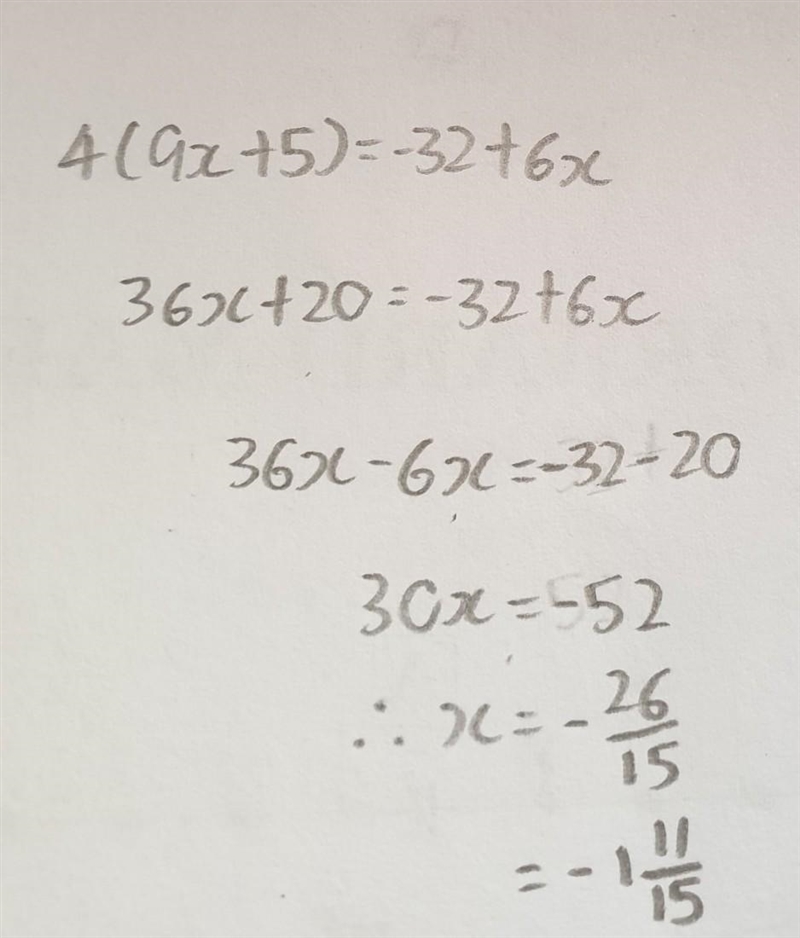 4(9x+5)=-32+6x
36x+20=-32+6x
36x-6x=-32-20
30x=-52
∴ x=-26/15
=-1 11/15